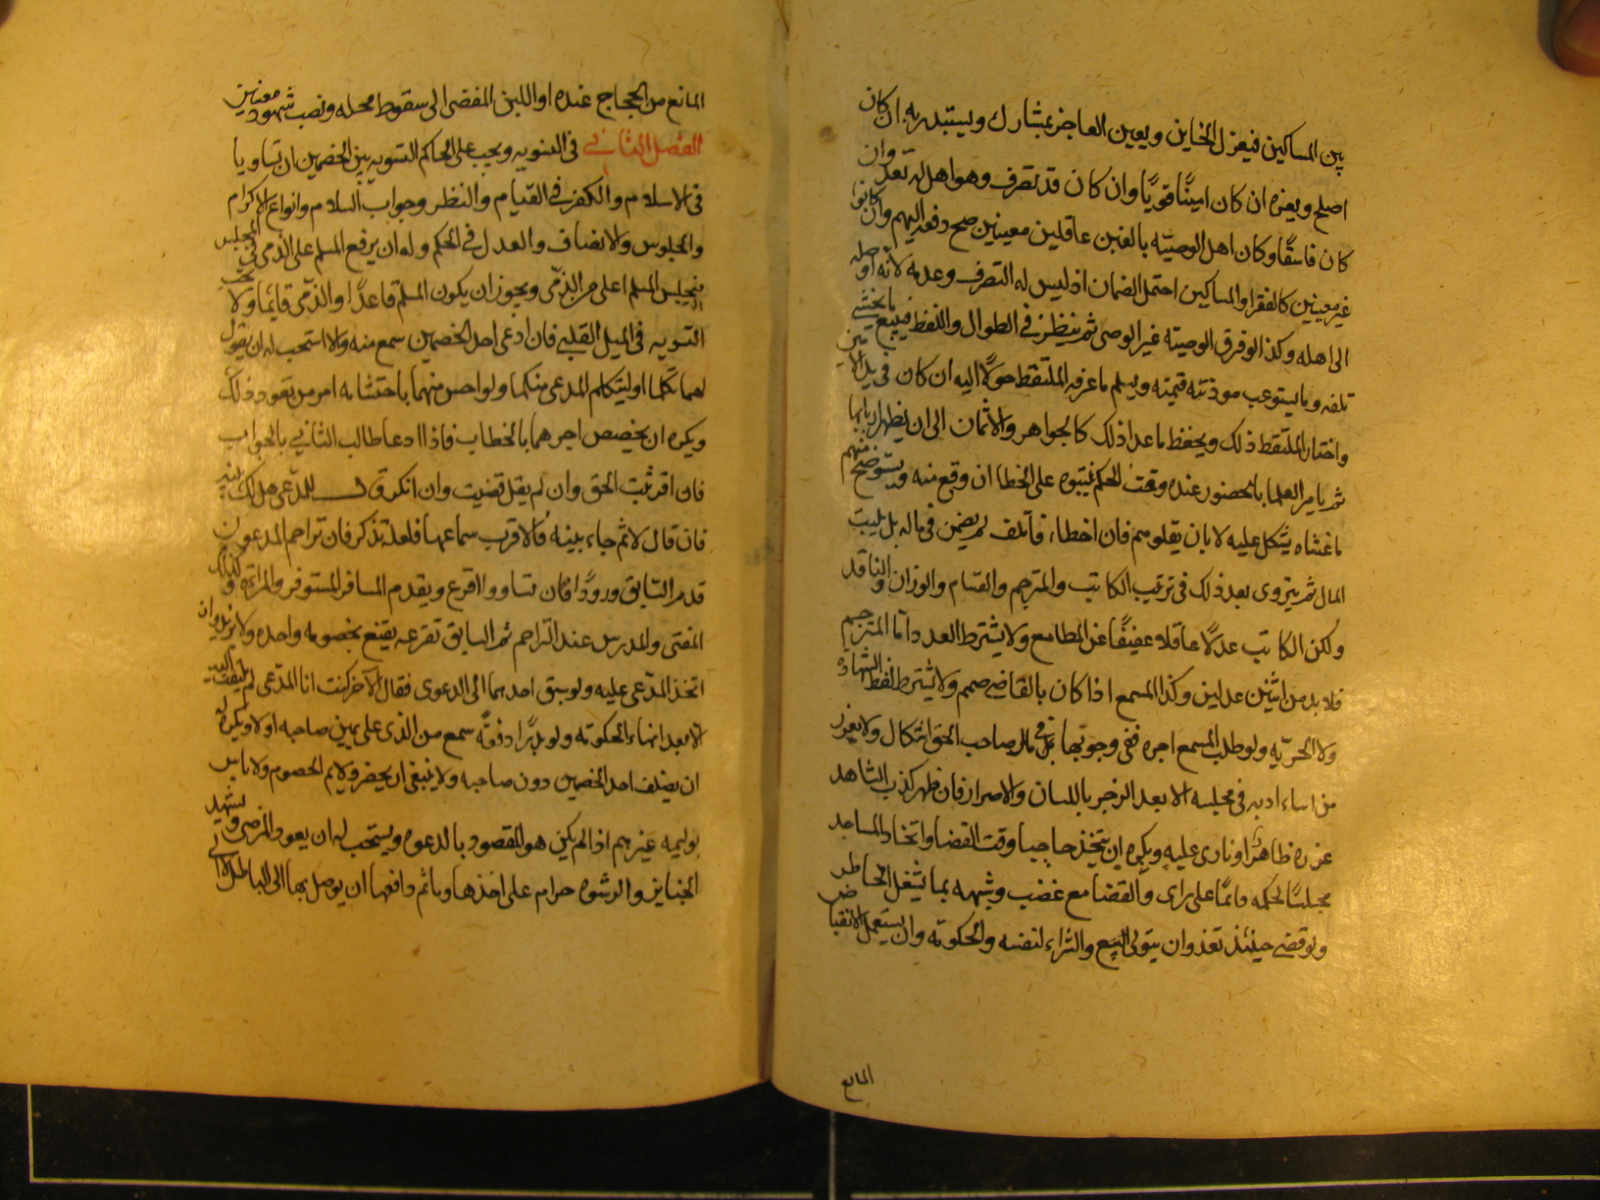 بين المساكين فيعزل الخاين ويعين العاجز بمشارك ويستبدل به ان كان
اصلح ويعزه ان كان امينًا قويًا وان كان قد تصرف وهو اهل له نفذ وان
كان فاسقًا وكان اهل الوصيّه بالغين عاقلين معينين صح دفعه اليهم وان كانوا
غير معينين كالفقرا والمساكين احتمل الضمان اذ ليس له التصرف وعدمه لانه اوصله
الى اهله وكذا لو فرق الوصيته غير الوصى ثم ينظر في الطوال واللقط فيبيع ما يخشى
تلفه وما يستوعب موذنته قيمته ويسلم ما عرفه الملتقط حولا اليه ان كان في يد الامين
واختار الملتقط ذلك ويحفظ ما عدا ذلك كالجواهر والاثمان الى ان يظهر اربابها
ثم يامر العلما بالحضور عنده وقت الحكم لينبهوه على الخطا ان وقع منه ويستوضح منهم
ما عساه يشكل عليه لا بان يقلدهم فان اخطاء فاتلف لم يضمن في ماله بل بيت
المال ثم يتروى بعد ذلك في ترتيب الكاتب والمترجم والقسام والوزان والناقد
ولكن الكاتب عدلًا عاقلا عفيفًا عن المطامع ولا يشترط العدد اما المترجم
فلا بد من اثنين عدلين وكذا المسمع اذا كان بالقاضي صمم ولا يشترط لفظ الشهاده
ولا الحريّه ولو طلب المسمع اجره ففى وجوبها في مال صاحب الحق اشكال ولا يعزر
من اساء ادبه في مجلسه الا بعد الزجر باللسان والاصرار فان ظهر كذب الشاهد
عزره ظاهرًا ونادى عليه ويكره ان يتخذ حاجبا وقت القضا واتخاذ المساجد
مجلسًا لحكمه دائمًا على راى والقضا مع غضب وشبهه بما يشغل الخاطر
ولو قضى حينئذ نفذ وان يتولى البيع والشراء لنفسه والحكومه وان يستعمل الانقباض
المانع
المانع من الحجاج عنده او اللين المفضى الى سقوط محله ونصب شهود معينين
الفصل الثاني في التسويه ويجب على الحاكم التسويه بين الخصمين ان تساويا
في الاسلام والكفر في القيام والنظر وجواب السلام وانواع الاكرام
والجلوس والانصاف والعدل في الحكم وله ان يرفع المسلم على الذمى في المجلس
فيجلس المسلم اعلى من الذمى ويجوز ان يكون المسلم قاعدًا والذمى قايمًا ولا تجب
التسويه في الميل القلبي فان ادعى احد الخصمين سمع منه والا استحب له ان يقول
لهما تكلما او ليتكلم المدعى منكما ولو احس منهما باحتشامه امر من يقول ذلك
ويكره ان يخصص احدهما بالخطاب فاذا ادعا طالب الثاني بالجواب
فان اقر ثبت الحق وان لم يقل قضيت وان انكر قال للمدعى هل لك بينه
فان قال لا ثم جاء ببينه فالاقرب سماعها فلعله تذكر فان تزاحم المدعون
قدم السابق ورودًا فان تساووا اقرع ويقدم المسافر المستوفز والمراه وكذلك
المفتى والمدرس عند التزاحم ثم السابق بقرعه يقنع بخصومه واحده ولا يزيد وان
اتحد المدعى عليه ولو سبق احدهما الى الدعوى فقال الاخر كنت انا المدعى لم يلتفت اليه
الا بعد انهاء الحكومه ولو بدرا دفعة سمع من الذى على يمين صاحبه اولا ويكره له
ان يضيف احد الخصمين دون صاحبه ولا ينبغى ان يحضر ولايم الخصوم ولا باس
بوليمه غيرهم اذا لم يكن هو المقصود بالدعوه ويستحب له ان يعود المرضى ويشهد
الجنايز والرشوه حرام على اخذها وياثم دافعها ان توصل بها الى الباطل لا الى